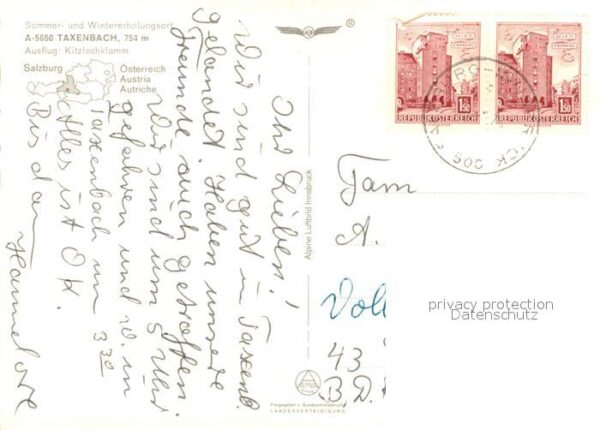 Sommer- und Wintererholungsort
A-5660 TAXENBACH, 754 m
Ausflug: Kitzlochklamm
Salzburg
Österreich
Austria
Autriche
Ihr Lieben!
Wir sind gut in Taxenb.
gelandet. Haben unsere
Freunde auch getroffen.
Wir sind um 5 Uhr
gefahren und w. in
Taxenbach um 3 30
Alles ist O.K.
Bis dann
Hannelore
Alpine Luftbild Innsbruck
LANDESVERTEIDIGUNG
1.50
REPUBLIK ÖSTERREICH
1.50
REPUBLIK ÖSTERREICH
Fam
A.
43
B.D.
privacy protection
Datenschutz